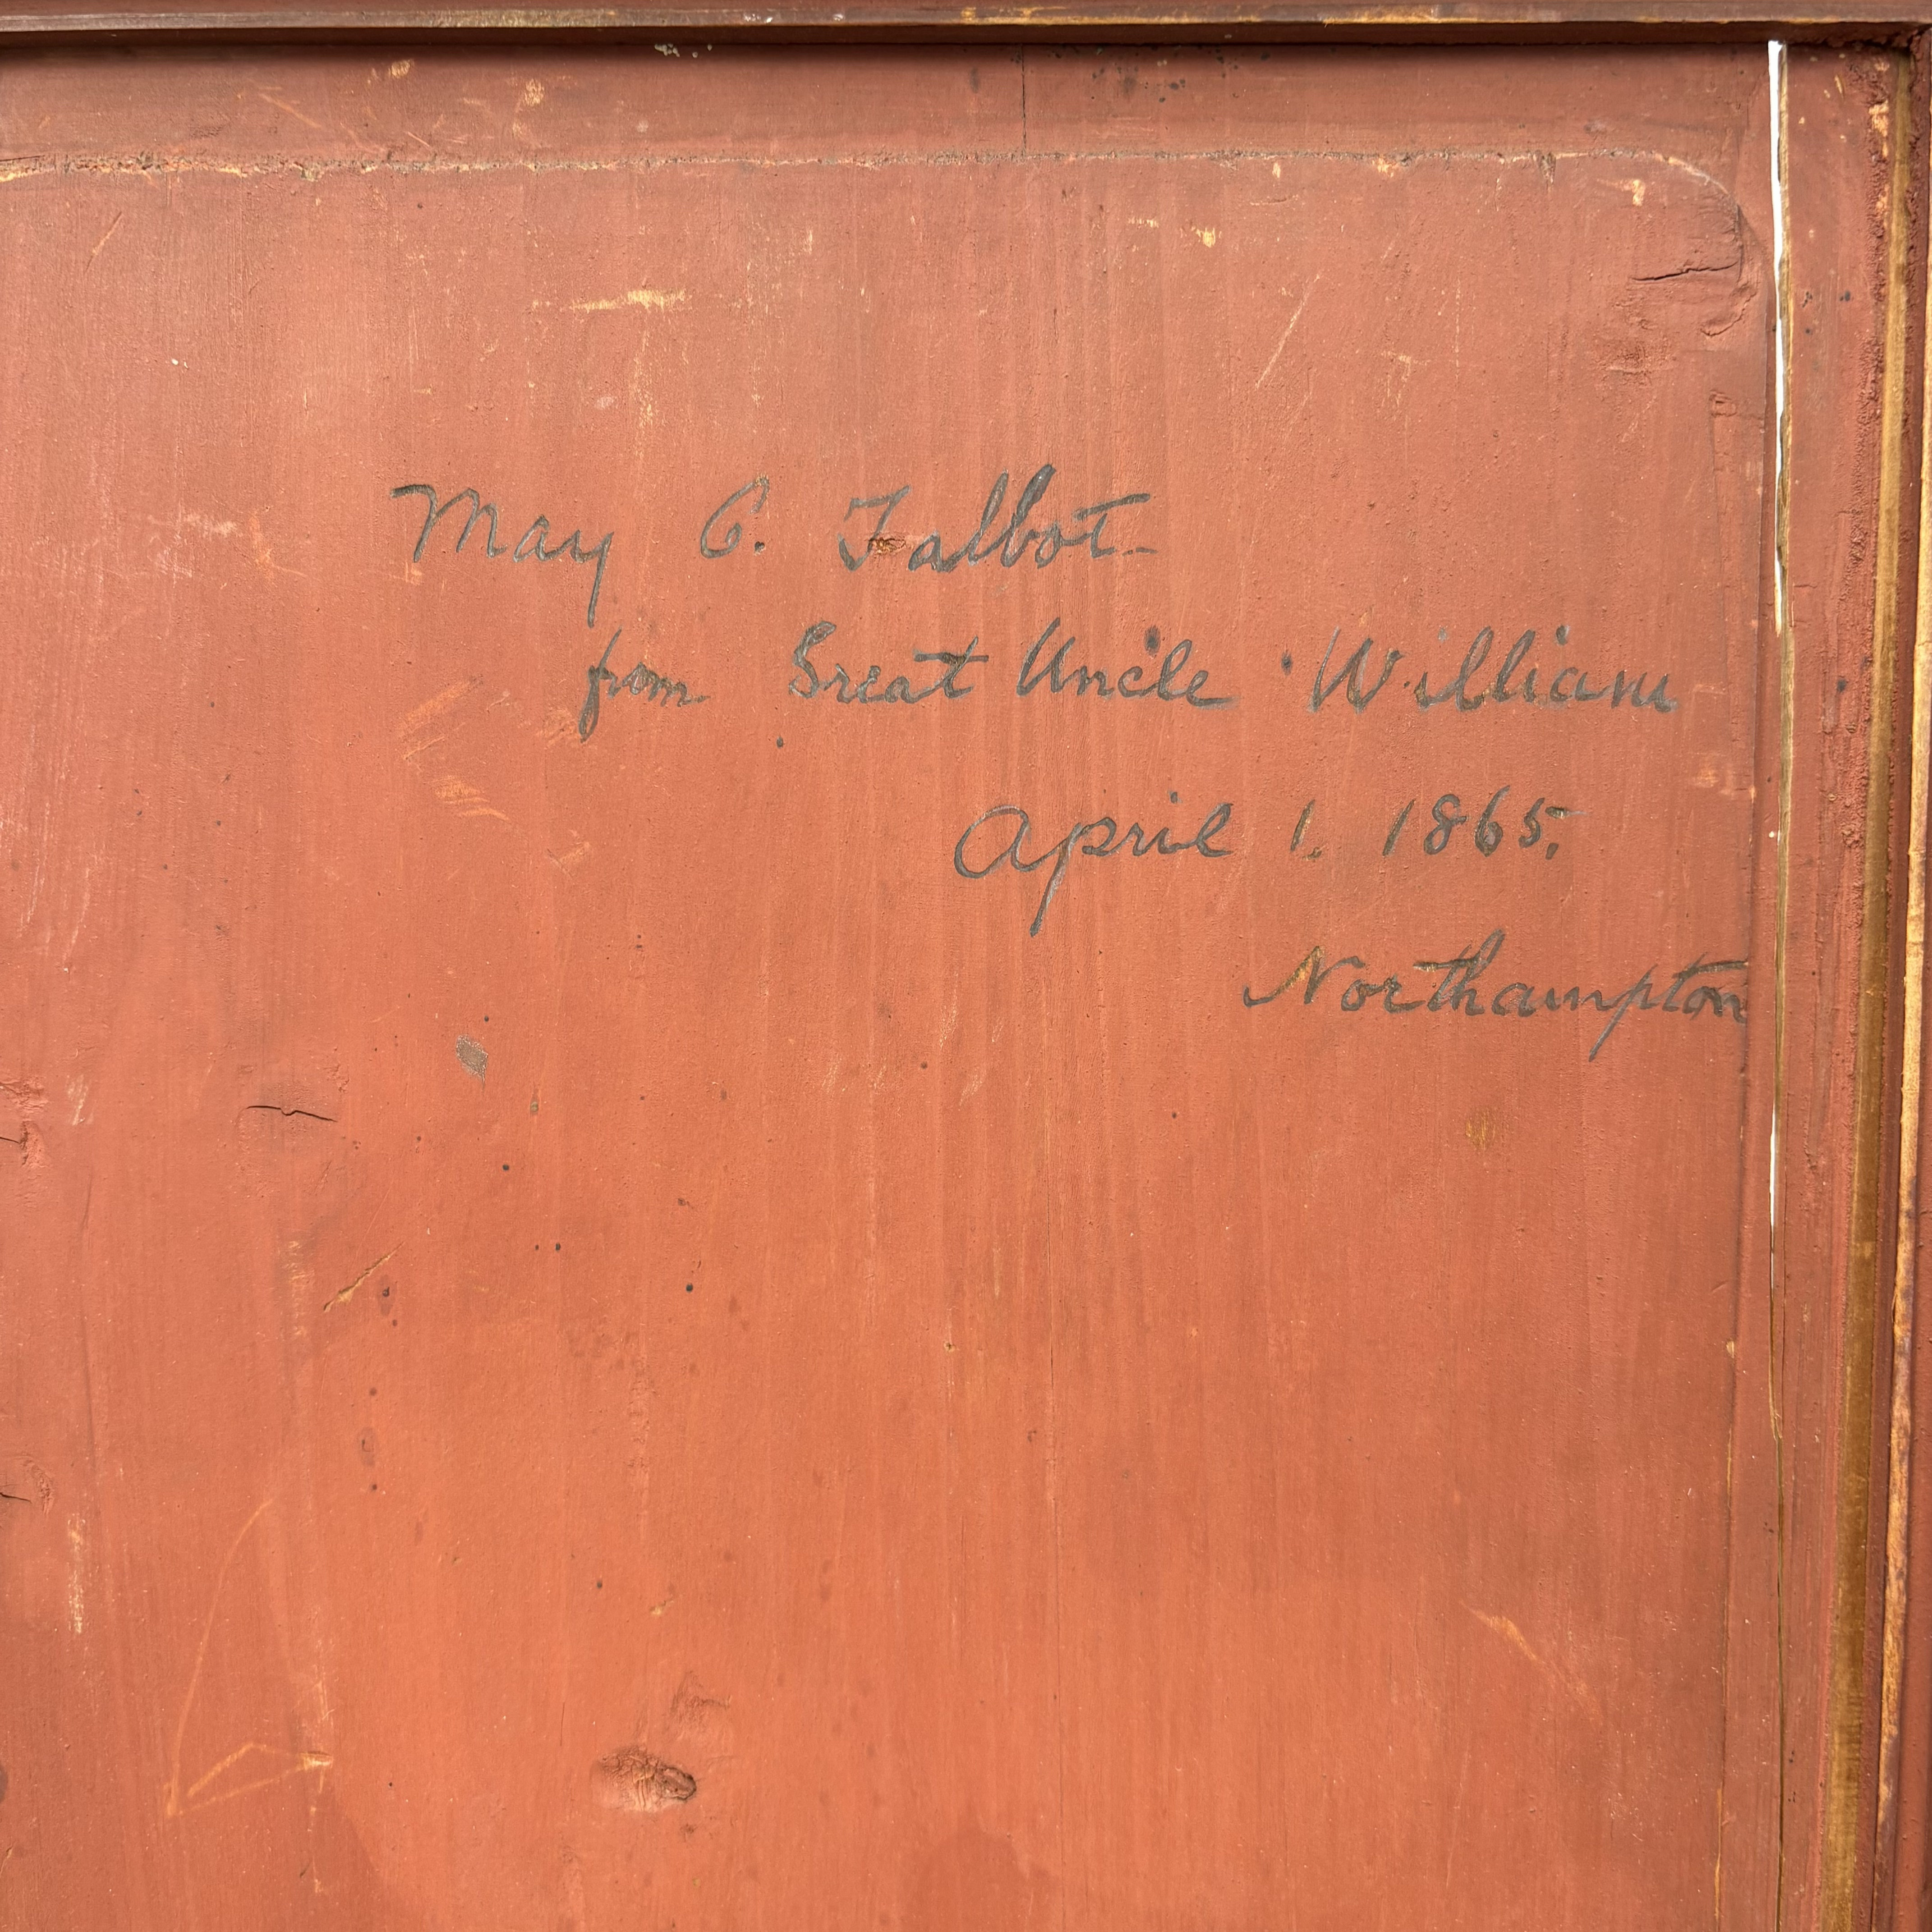 May C. Talbot
from Great Uncle William
April 1. 1865.
Northampton